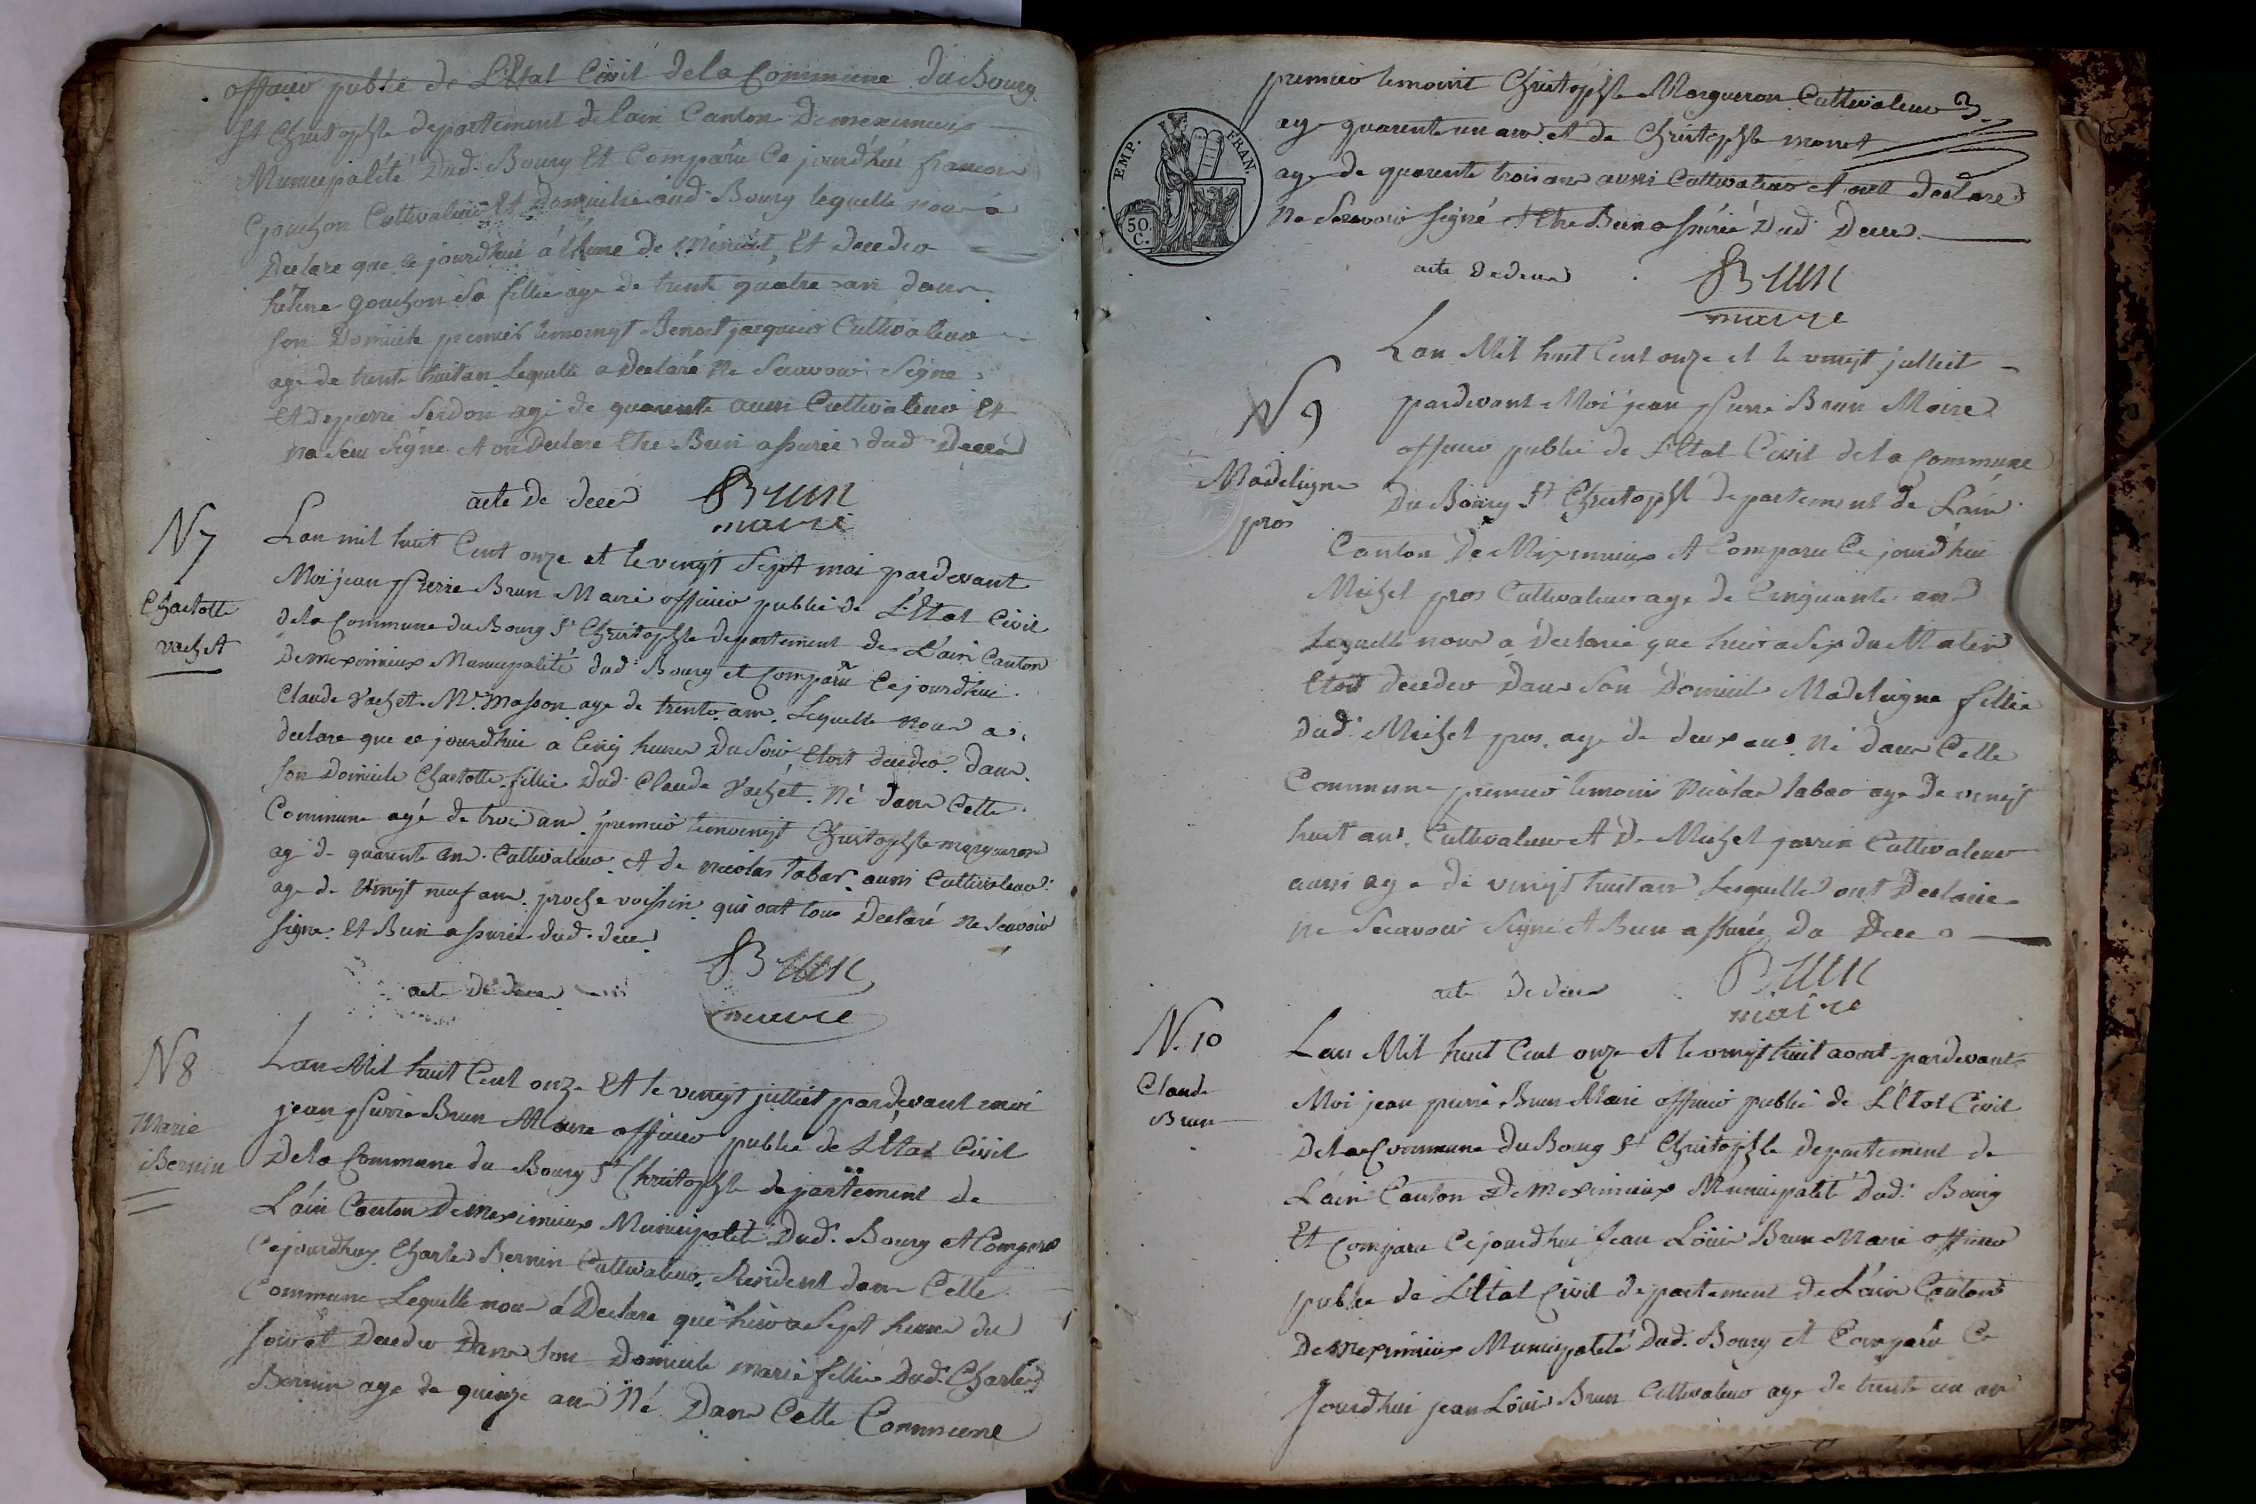 officier publié de L'Etat Civil dela Commune du Bourg
St Christophle departement de lain Canton De meximieux
Municipalité Dud. Bourg Et Comparu Ce jourdhui francois
Gouchon Cultivateur Et Domicilié aud. Bourg lequelle nous a
Declare que ce jourdhui á lheure de Minuit, Et decedeo
helene gouchon Sa fillie age de trente quatre an dans
son Domicile premier temoingt Benoit jacquier Cultivateur
age de trente huit an Lequelle a Declaré Ne Scavoir Signe
Et De pierre Seidon agé de quarente aussi Cultivateur Et
na Seu Signe Et on Declare Etre Bien assurée dud. Decéd
acte De deced
Brun
maire
N 7
Charlotte
vachet
Lan mil huit Cent onze et le vingt Sept mai pardevant
Moi jean pierre Brun Maire officier publié de L'Etat Civil
dela Commune du Bourg St Christophle departement de L'ain Canton
De meximieux Municipalité dud. Bourg et Comparu Ce jourdhui
Claude Vachet Mr. Masson age de trente ans. Lequelle Nous a
declare que ce jourdhui a Cinq heures Du Soir, Etoit decedeo dans
son Domicile Charlotte fillie Dud. Claude Vachet. Né dans Cette
Commune agé de trois ans premier temoingt Christophle morgueron
ag de quarente an Cultivateur Et de nicolas tabar aussi Cultivateur
age de vingt neuf ans. proche voissin qui ont tous Declaré Ne Scavoir
signe Et Bien assurée dud. deced
acte De deced
Brun
maire
N 8
Marie
Bernin
Lan Mil huit Cent onze Et le vingt julliet pardevant moi
jean pierre Brun Maire officier publié de L'Etat Civil
Dela Commune du Bourg St Christophle departement de
L'ain Canton De meximieux Municipalité Dud. Bourg Et Comparu
Cejourdhuy Charles Bernin Cultivateur Resident dans Cette
Commune Lequelle nous á Declare que hier a Sept heures du
soir et Decedeo Dans Son Domicile marie fillie Dud. Charles
Bernin age de quinze ans Né Dans Cette Commune
EMP. FRAN.
50 C.
premier temoint Christophle Morgueron Cultivateur
age quarente un ans et de Christophle monet
age de quarente trois ans aussi Cultivateur Et ont declare
Ne Scavoir Signé Ethe Bien assurée Dud. Deced.
acte Dedeced
Brun
maire
N 9
Madeligne
pros
Lan Mil huit Cent onze et le vingt julliet
pardevant Moi jean pierre Brun Maire
officier publié de L'Etat Civil dela Commune
Du Bourg St Christophle departement de L'ain
Canton De Meximieux Et Comparu Ce jourdhui
Michel pros Cultivateur age de Cinquante ans
Lequelle nous a Declarée que hier a Six du Matin
Etoit decedeo Dans Son Domicile Madeleigne fillie
Dud. Michel pros. age de deux ans Né dans Cette
Commune premier temoin Nicolas tabar age de vingt
huit ans. Cultivateur Et De Michel janin Cultivateur
aussi age de vingt huit ans Lesquelle ont Declarée
ne Scavoir Signé Et Bien assurée Du Deced
acte Dedeced
Brun
maire
N. 10
Claude
Brun
Lan Mil huit Cent onze Et le vingt huit aout pardevant
Moi jean pierre Brun Maire officier publié de L'Etat Civil
De la Commune Du Bourg St Christophle departement de
L'ain Canton De Meximieux Municipalité Dud. Bourg
Et Comparu Ce jourdhui Jean Loüis Brun Maire officier
publié de L'Etat Civil departement de L'ain Canton
De Meximieux Municipalité Dud. Bourg et Comparu Ce
Jourdhui jean Loüis Brun Cultivateur age de trente un an